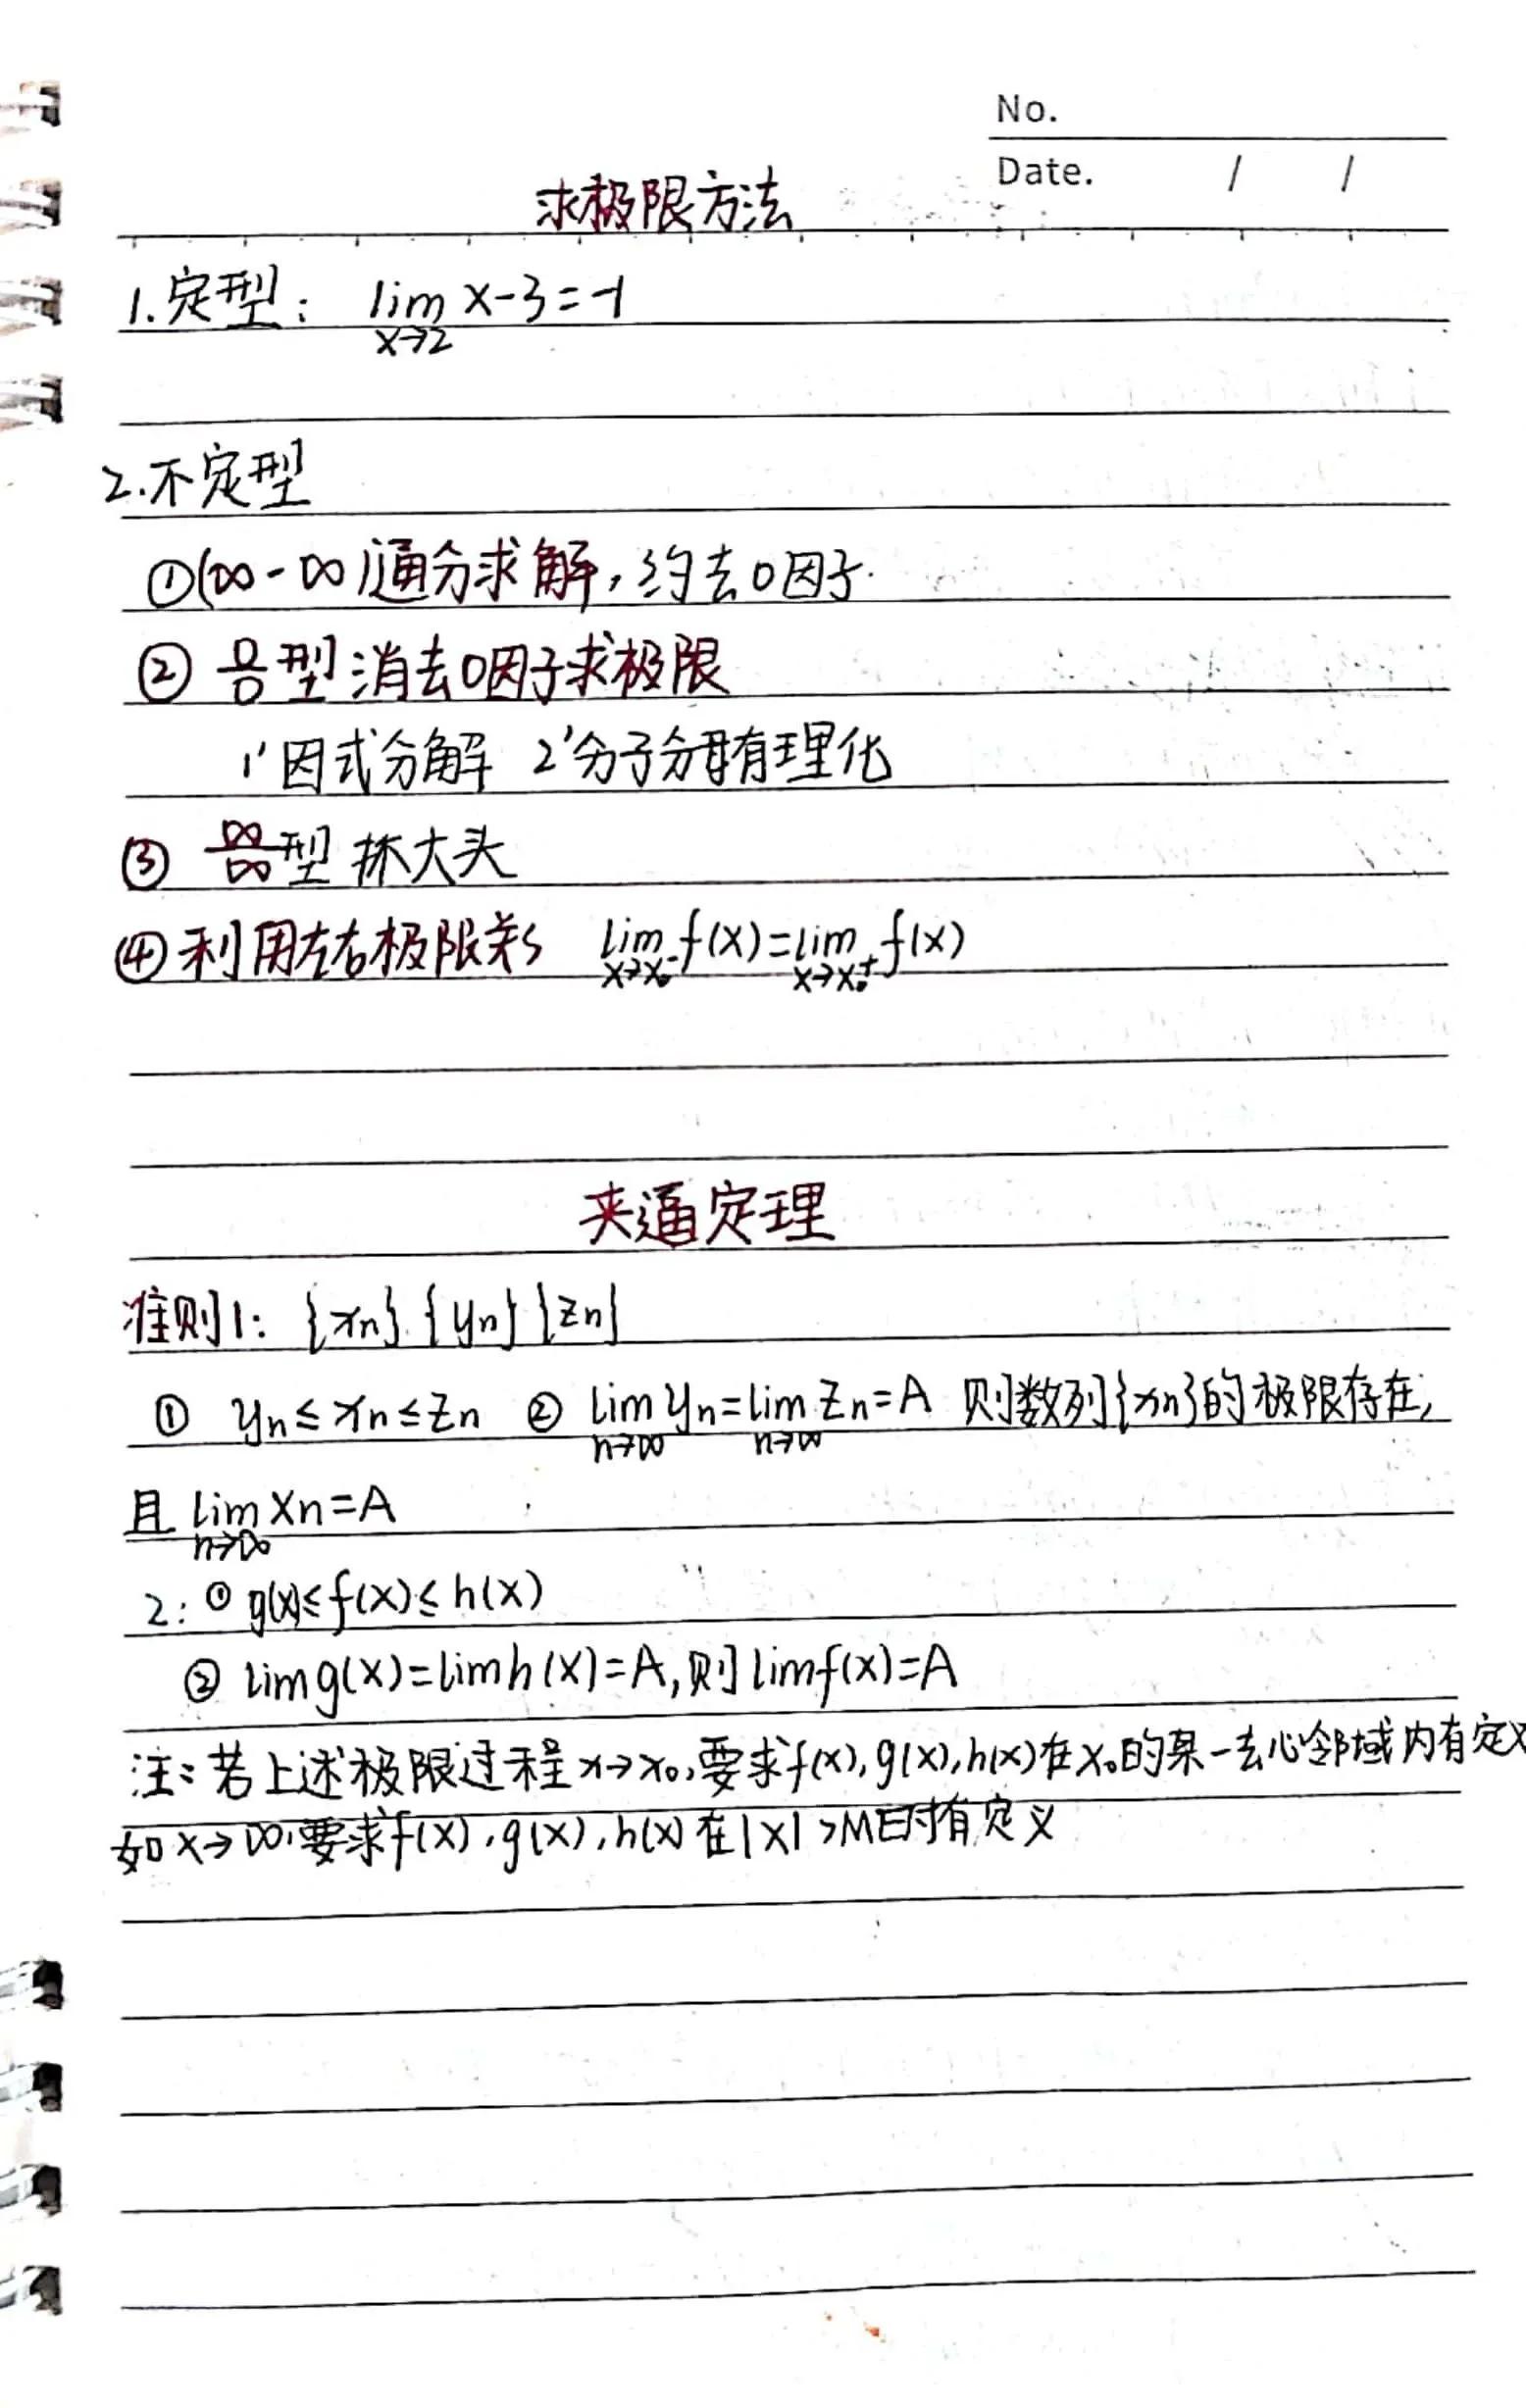 No.
Date. / /
求极限方法
1.定型: lim x-3=-1
x→2
2.不定型
①(∞-∞)通分求解,约去0因子.
② 0/0型消去0因子求极限
1'因式分解 2'分子分母有理化
③ ∞/∞型 抹大头
④利用左右极限关 lim f(x)=lim f(x)
x→x₀⁻ x→x₀⁺
夹逼定理
准则1: {xn} {yn} {zn}
① yn≤xn≤zn ② lim yn=lim zn=A 则数列{xn}的极限存在,
n→∞ n→∞
且 lim xn=A
n→∞
2: ① g(x)≤f(x)≤h(x)
② lim g(x)=lim h(x)=A,则lim f(x)=A
注:若上述极限过程x→x₀,要求f(x),g(x),h(x)在x₀的某一去心邻域内有定义
如x→∞,要求f(x),g(x),h(x)在|x|>M时有定义